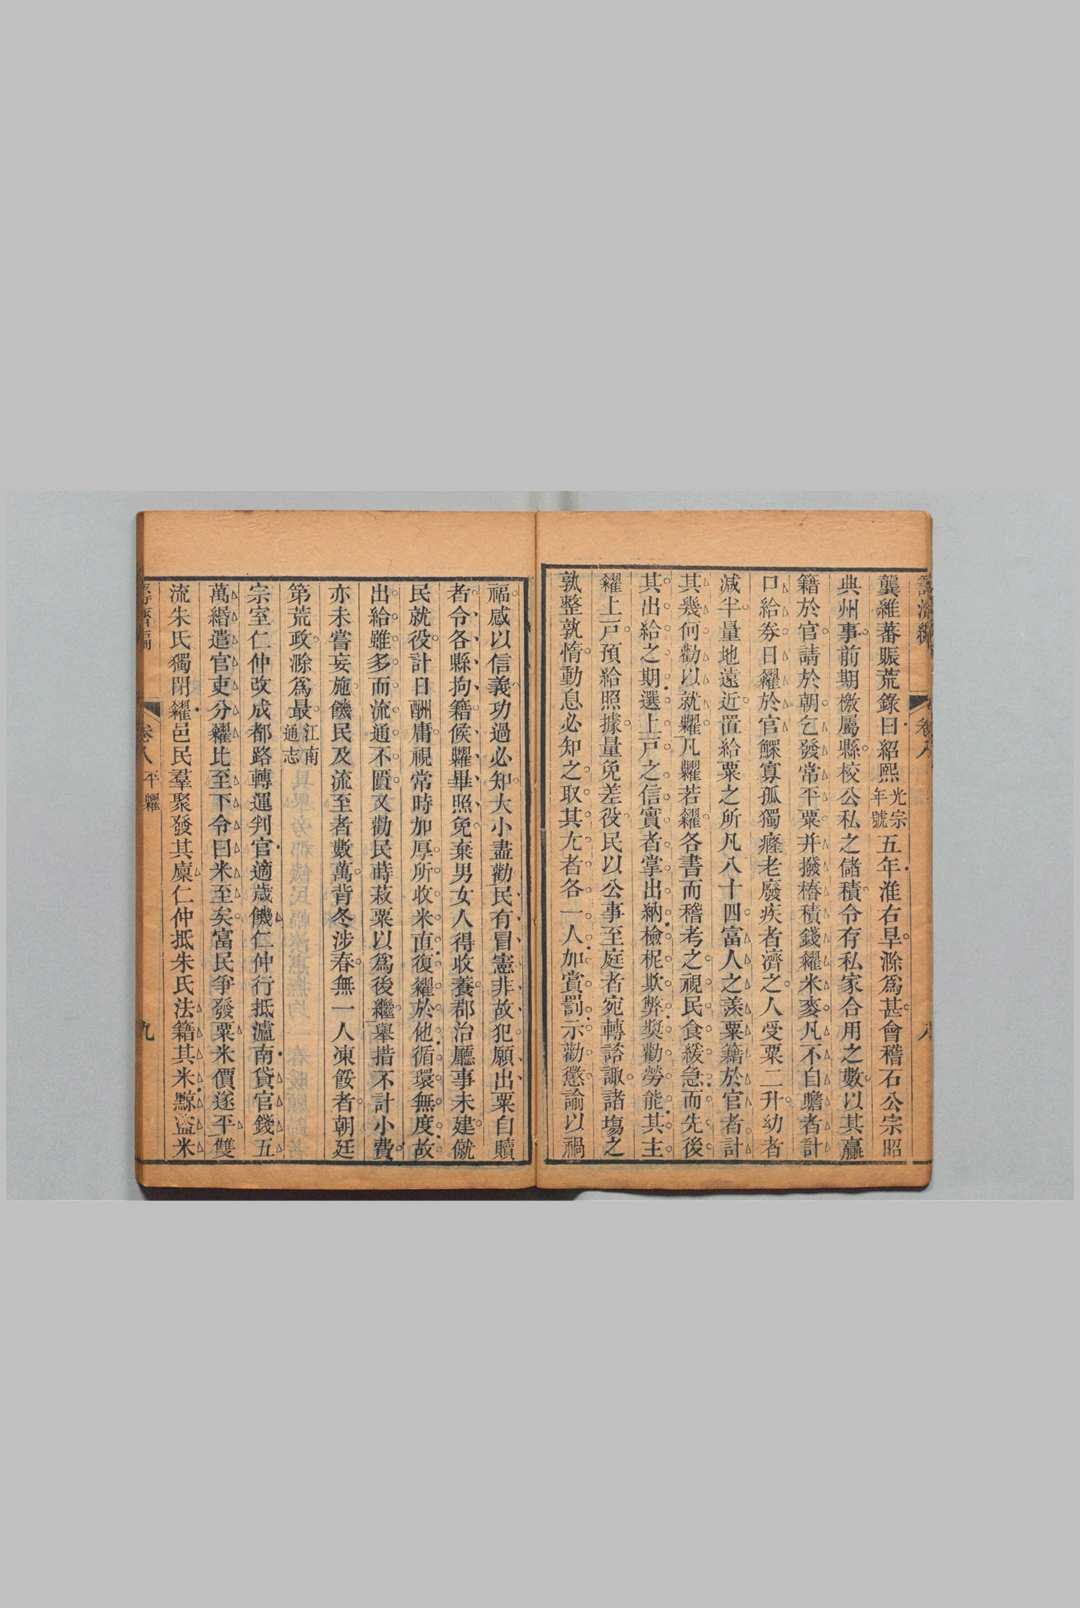 龔維蕃賑荒錄曰紹熙光宗年號五年淮右旱滁爲甚會稽石公宗昭
典州事前期檄屬縣校公私之儲積令存私家合用之數以其贏
籍於官請於朝乞發常平粟并撥樁積錢糴米麥凡不自贍者計
口給券日糴於官鰥寡孤獨癃老廢疾者濟之人受粟二升幼者
減半量地遠近置給粟之所凡八十四富人之羨粟籍於官者計
其幾何勸以就糶凡糶若糴各書而稽考之視民食緩急而先後
其出給之期選上戶之信實者掌出納檢柅欺弊奬勸勞能其主
糴上戶預給照據量免差役民以公事至庭者宛轉諮諏諸塲之
孰整孰惰動息必知之取其尤者各一人加賞罰示勸懲諭以禍
福感以信義功過必知大小盡勸民有冒憲非故犯願出粟自贖
者令各縣拘籍候糶畢照免棄男女人得收養郡治廳事未建僦
民就役計日酬庸視常時加厚所收米直復糴於他循環無度故
出給雖多而流通不匱又勸民蒔菽粟以爲後繼舉措不計小費
亦未嘗妄施饑民及流至者數萬背冬涉春無一人凍餒者朝廷
第荒政滁爲最江南通志
宗室仁仲改成都路轉運判官適歲饑仁仲行抵瀘南貸官錢五
萬緡遣官吏分糴比至下令曰米至矣富民爭發粟米價遂平雙
流朱氏獨閉糴邑民羣聚發其廩仁仲抵朱氏法籍其米黥盜米
卷八 平糶
九